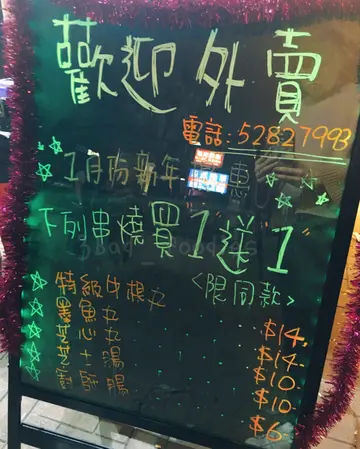 歡迎外賣
電話:52827993
1月份新年 惠
下列串燒買1送1
<限同款>
特級牛根丸 $14.
墨魚丸 $14.
芝心丸 $10.
芝士腸 $10.
廚師腸 $6.